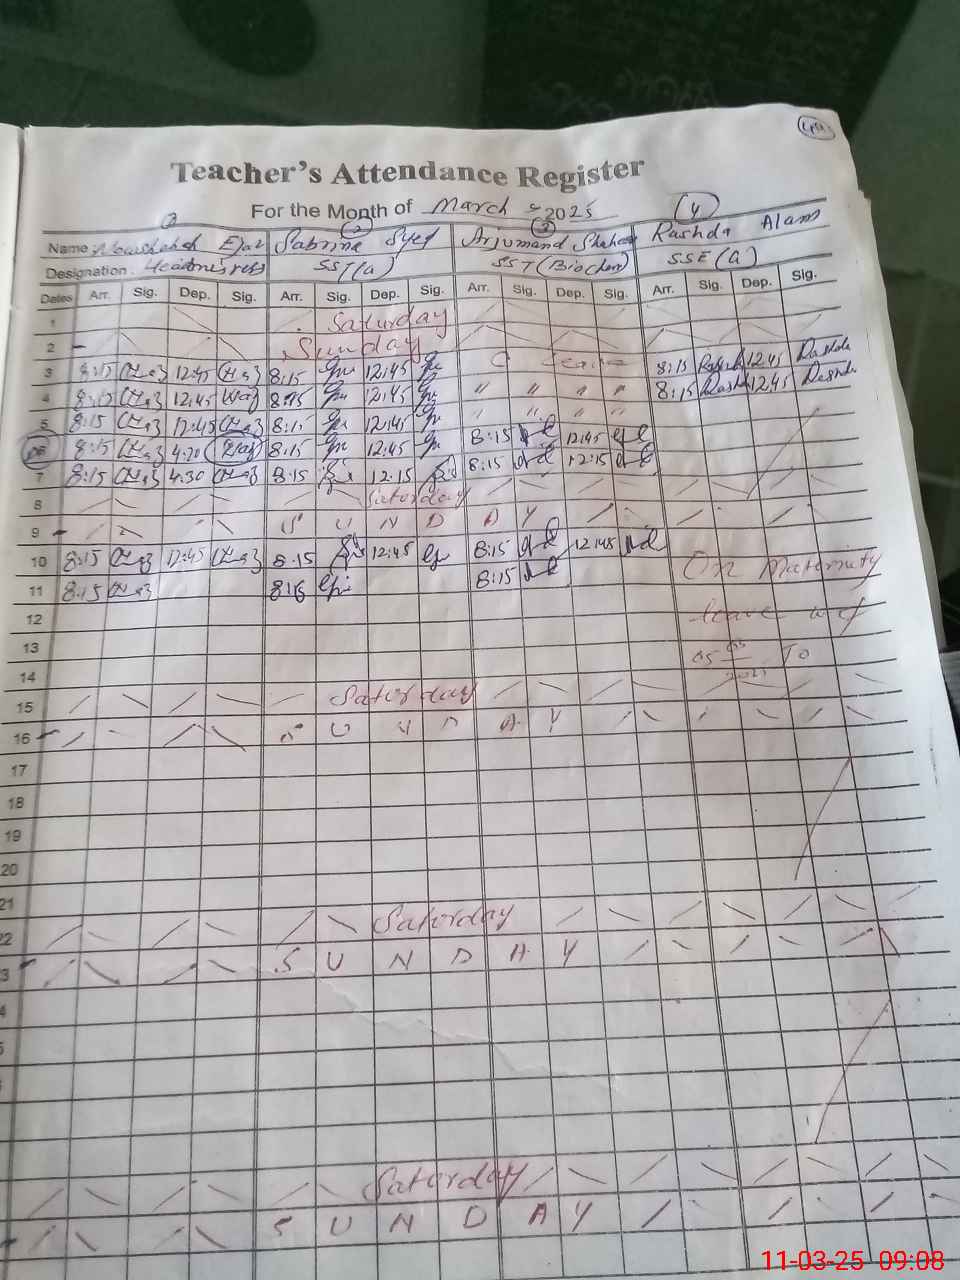 Teacher's Attendance Register
For the Month of March - 2025
(4)
Name Ejaz Sabrina Syed Arjumand Shaheen Rashda Alam
Designation. Headmistress SST(G) SST (Biochem) SSE (G)
Dates Arr. Sig. Dep. Sig. Arr. Sig. Dep. Sig. Arr. Sig. Dep. Sig. Arr. Sig. Dep. Sig.
1 Saturday
2 Sunday
3 8:15 12:45 8:15 12:45 C leave 8:15 Rashda 12:45 Rashda
4 8:15 12:45 8:15 12:45 " " " " 8:15 Rashda 12:45 Rashda
5 8:15 12:45 8:15 12:45 " " " "
06 8:15 4:20 8:15 12:45 8:15 12:45
7 8:15 4:30 8:15 12:15 8:15 12:15
8 Saturday
9 S U N D A Y
10 8:15 12:45 8:15 12:45 8:15 12:45 On Maternity
11 8:15 8:15 8:15
12 leave wef
13 05 03 2025 To
14
15 Saturday
16 S U N D A Y
17
18
19
20
21
22 Saturday
3 S U N D A Y
4
5
Saturday
S U N D A Y
11-03-25 09:08